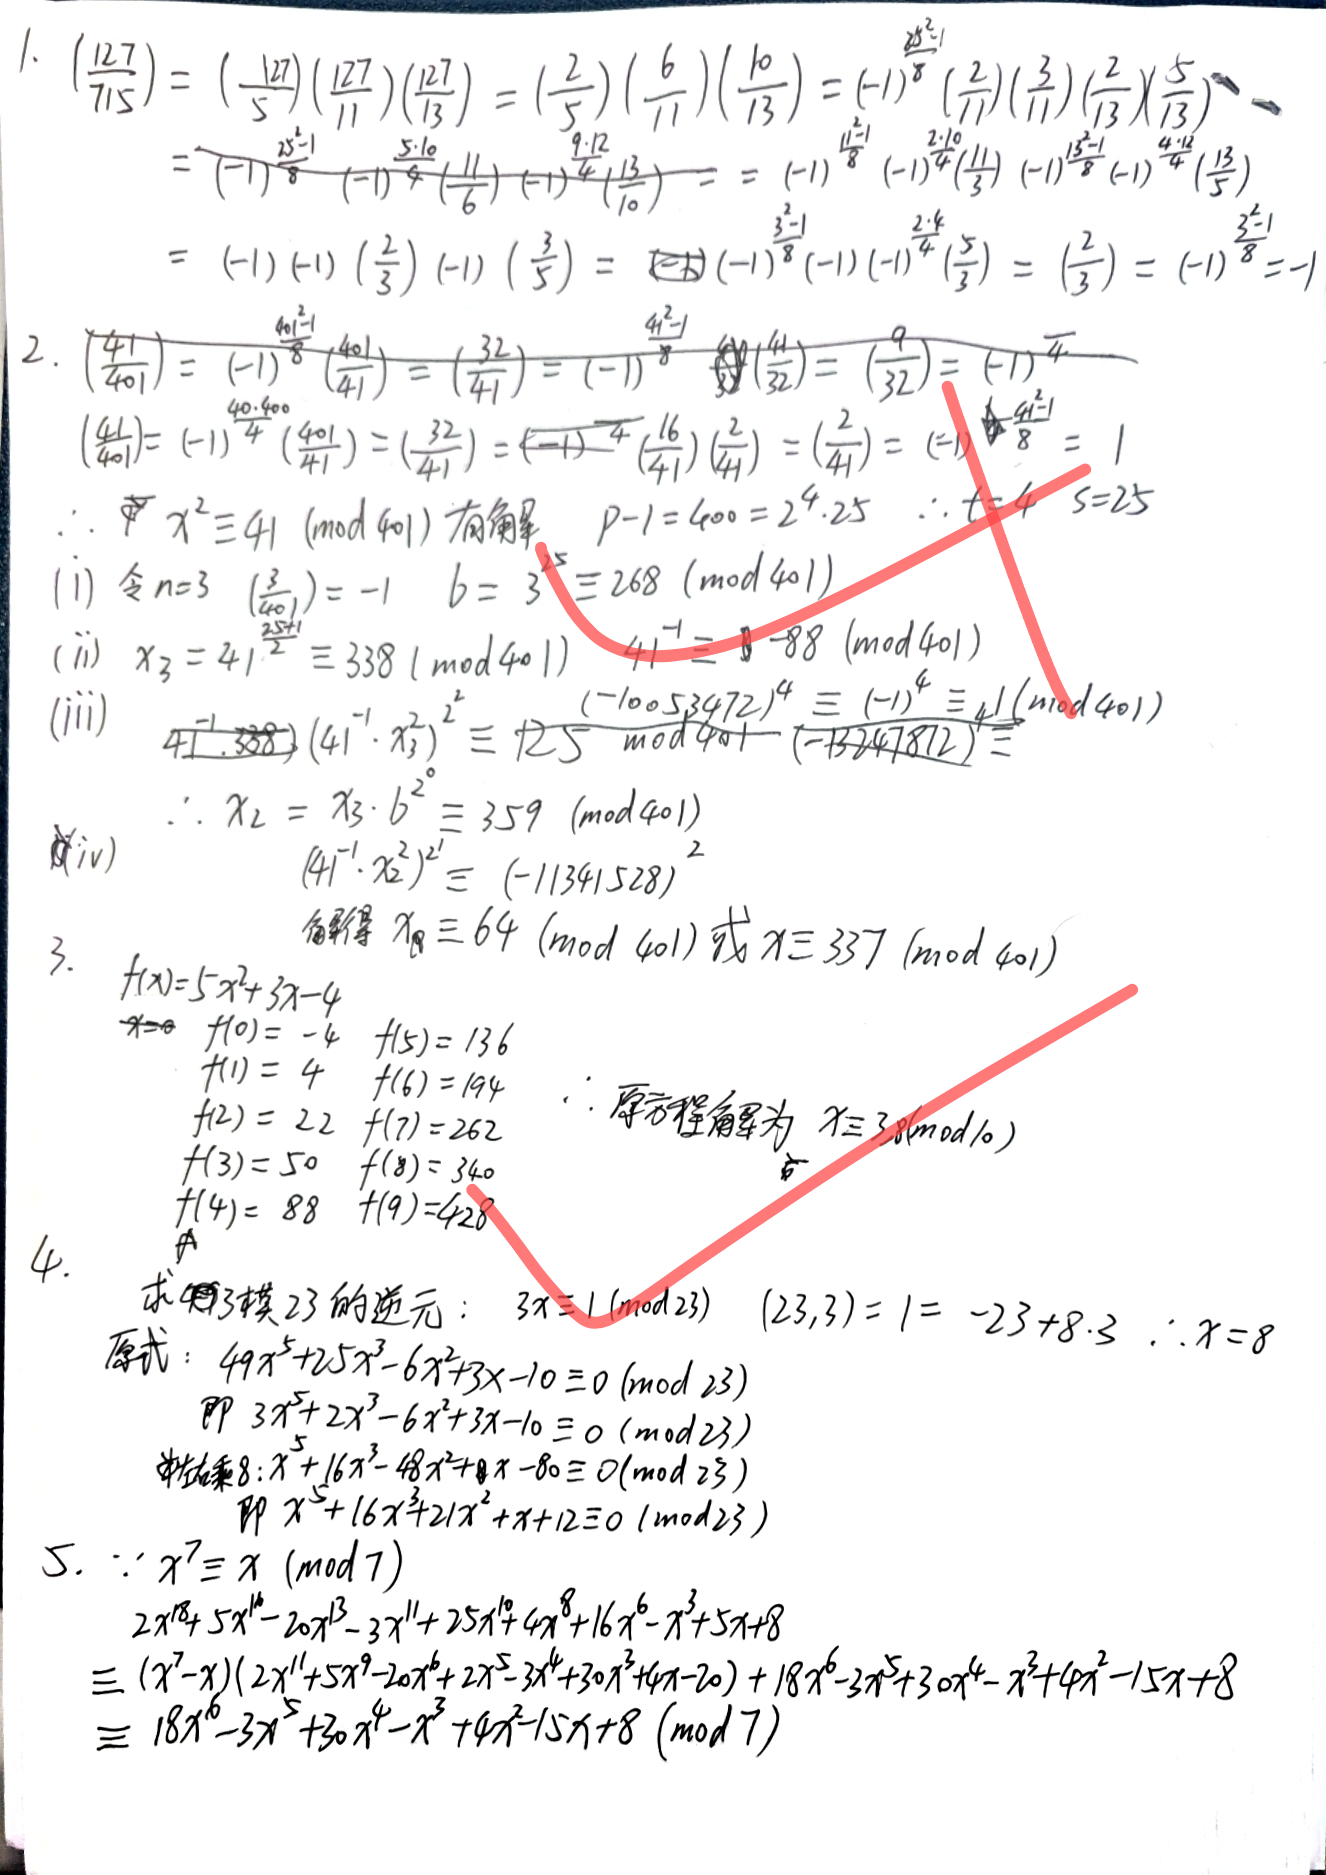 1. (127/715) = (127/5)(127/11)(127/13) = (2/5)(6/11)(10/13) = (-1)^{(25²-1)/8} (2/11)(3/11)(2/13)(5/13)
= (-1)^{(25²-1)/8} (-1)^{5·10/4} (11/6) (-1)^{9·12/4} (13/10) = = (-1)^{(11²-1)/8} (-1)^{2·10/4} (11/3) (-1)^{(13²-1)/8} (-1)^{4·12/4} (13/5)
= (-1)(-1)(2/3)(-1)(3/5) = (-1)^{(3²-1)/8} (-1)(-1)^{2·4/4} (5/3) = (2/3) = (-1)^{(3²-1)/8} = -1
2. (41/401) = (-1)^{(401²-1)/8} (401/41) = (32/41) = (-1)^{(41²-1)/8} (41/32) = (9/32) = (-1)^{/4}
(41/401) = (-1)^{40·400/4} (401/41) = (32/41) = (16/41)(2/41) = (2/41) = (-1)^{(41²-1)/8} = 1
∴ x² ≡ 41 (mod 401) 有解 p-1 = 400 = 2⁴·25 ∴ t=4 s=25
(i) 令n=3 (3/401) = -1 b = 3²⁵ ≡ 268 (mod 401)
(ii) x₃ = 41^{(25+1)/2} ≡ 338 (mod 401) 41⁻¹ ≡ -88 (mod 401)
(iii) 41⁻¹·338 (41⁻¹·x₃²)^{2²} ≡ 125 mod 401 (-10053472)⁴ ≡ (-1)⁴ ≡ 1 (mod 401) (-13247872)⁴ ≡
∴ x₂ = x₃·b^{2⁰} ≡ 359 (mod 401)
(iv) (41⁻¹·x₂²)^{2¹} ≡ (-11341528)²
解得 x ≡ 64 (mod 401) 或 x ≡ 337 (mod 401)
3. f(x)=5x²+3x-4
x=0 f(0) = -4 f(5) = 136
f(1) = 4 f(6) = 194
f(2) = 22 f(7) = 262
f(3) = 50 f(8) = 340
f(4) = 88 f(9) = 428
∴ 原方程解为 x ≡ 3,8 (mod 10)
4. 求3模23的逆元: 3x ≡ 1 (mod 23) (23,3) = 1 = -23+8·3 ∴ x = 8
原式: 49x⁵+25x³-6x²+3x-10 ≡ 0 (mod 23)
即 3x⁵+2x³-6x²+3x-10 ≡ 0 (mod 23)
左右乘8: x⁵+16x³-48x²+x-80 ≡ 0 (mod 23)
即 x⁵+16x³+21x²+x+12 ≡ 0 (mod 23)
5. ∵ x⁷ ≡ x (mod 7)
2x¹⁸+5x¹⁶-20x¹³-3x¹¹+25x¹⁰+4x⁸+16x⁶-x³+5x+8
≡ (x⁷-x)(2x¹¹+5x⁹-20x⁶+2x⁵-3x⁴+30x³+4x-20)+18x⁶-3x⁵+30x⁴-x³+4x²-15x+8
≡ 18x⁶-3x⁵+30x⁴-x³+4x²-15x+8 (mod 7)